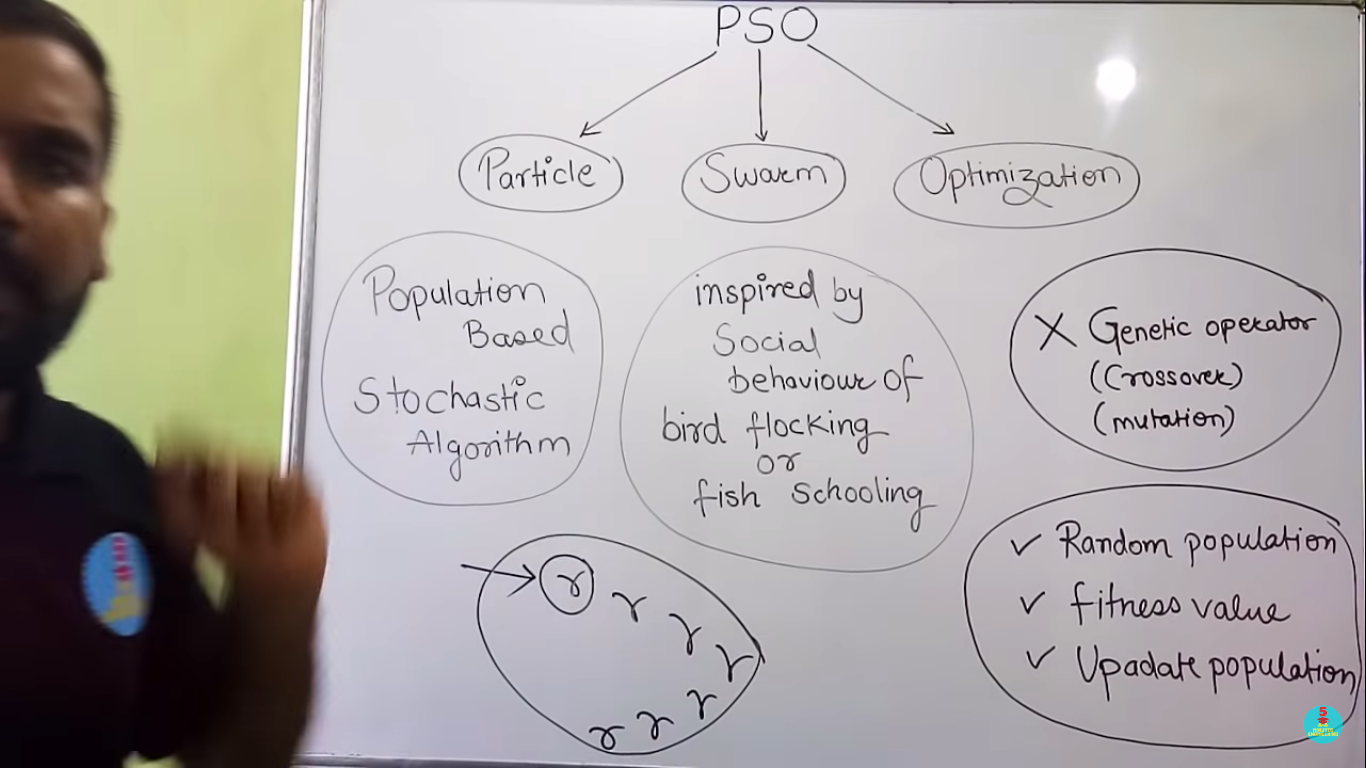 PSO
Particle
Swarm
Optimization
Population
Based
Stochastic
Algorithm
inspired by
Social
behaviour of
bird flocking
or
fish schooling
X Genetic operator
(Crossover)
(mutation)
✓ Random population
✓ fitness value
✓ Upadate population
r r r r r r r
5